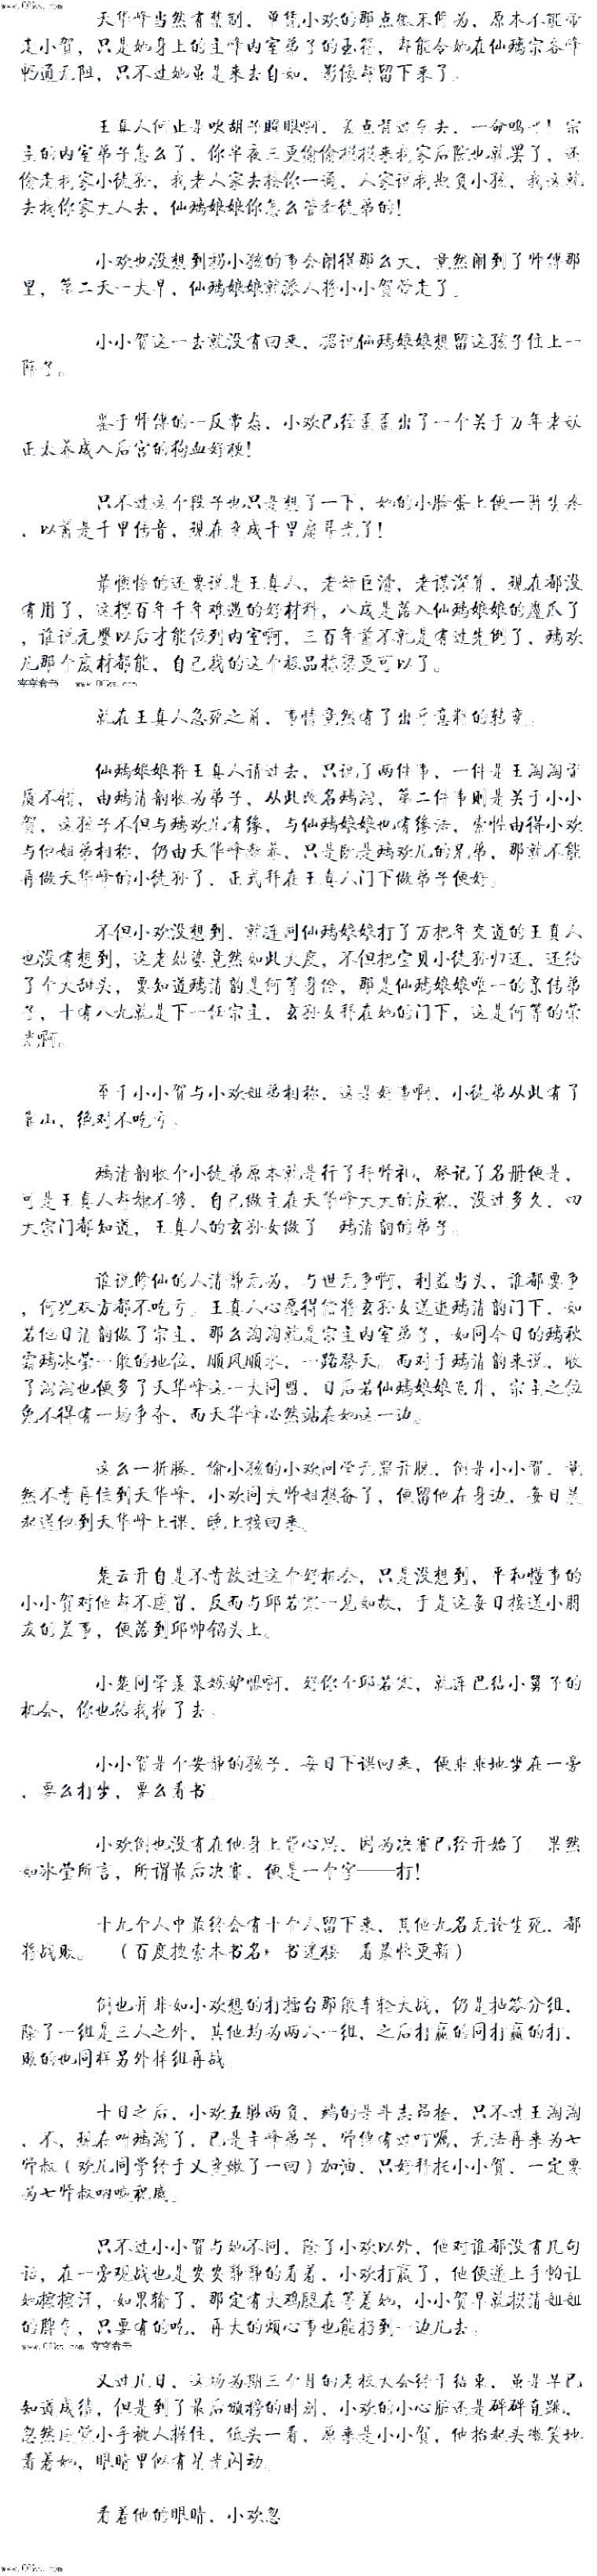 天华峰当然有禁制，单凭小欢的那点微末修为，原本不能带
走小贺，只是她身上的主峰内室弟子的玉符，却能令她在仙璃宗各峰
畅通无阻，只不过她虽是来去自如，影像却留下来了。
王真人何止是吹胡子瞪眼啊，差点背过气去，一命呜呼！宗
主的内室弟子怎么了，你半夜三更偷偷摸摸来我家后院也就罢了，还
偷走我家小徒孙，我老人家去揍你一通，人家说我欺负小孩，我这就
去找你家大人去，仙璃娘娘你怎么管教徒弟的！
小欢也没想到拐小孩的事会闹得那么大，竟然闹到了师傅那
里，第二天一大早，仙璃娘娘就派人将小小贺带走了。
小小贺这一去就没有回来，据说仙璃娘娘想留这孩子住上一
阵子。
鉴于师傅的一反常态，小欢已经歪歪出了一个关于万年老妖
正太养成入后宫的狗血好梗！
只不过这个段子也只是想了一下，她的小脸蛋上便一阵生疼
，以前是千里传音，现在变成千里扇耳光了！
最懊恼的还要说是王真人，老奸巨滑，老谋深算，现在都没
有用了，这棵百年千年难遇的好材料，八成是落入仙璃娘娘的魔爪了
，谁说元婴以后才能住到内室啊，三百年前不就是有过先例了，璃欢
儿那个废材都能，自己我的这个极品栋梁更可以了。
就在王真人急死之前，事情竟然有了出乎意料的转变。
仙璃娘娘将王真人请过去，只说了两件事，一件是王淘淘资
质不错，由璃清韵收为弟子，从此改名璃淘，第二件事则是关于小小
贺，这孩子不但与璃欢儿有缘，与仙璃娘娘也有缘法，索性由得小欢
与他姐弟相称，仍由天华峰教养，只是既是璃欢儿的兄弟，那就不能
再做天华峰的小徒孙了，正式拜在王真人门下做弟子便好。
不但小欢没想到，就连同仙璃娘娘打了万把年交道的王真人
也没有想到，这老姑婆竟然如此大度，不但把宝贝小徒孙归还，还给
了个大甜头，要知道璃清韵是何等身份，那是仙璃娘娘唯一的亲传弟
子，十有八九就是下一任宗主，玄孙女拜在她的门下，这是何等的荣
光啊。
至于小小贺与小欢姐弟相称，这是好事啊，小徒弟从此有了
靠山，绝对不吃亏。
璃清韵收个小徒弟原本就是行了拜师礼，登记了名册便是，
可是王真人却嫌不够，自己做主在天华峰大大的庆祝，没过多久，四
大宗门都知道，王真人的玄孙女做了　璃清韵的弟子。
谁说修仙的人清静无为，与世无争啊，利益当头，谁都要争
，何况双方都不吃亏。王真人心愿得偿将玄孙女送进璃清韵门下，如
若他日清韵做了宗主，那么淘淘就是宗主内室弟子，如同今日的璃秋
雲璃冰莹一般的地位，顺风顺水，一路登天。而对于璃清韵来说，收
了淘淘也便多了天华峰这一大同盟，日后若仙璃娘娘飞升，宗主之位
免不得有一场争夺，而天华峰必然站在她这一边。
这么一折腾，偷小孩的小欢同学无罪开脱，倒是小小贺，竟
然不肯再住到天华峰，小欢同大师姐报备了，便留他在身边，每日差
遣送他到天华峰上课，晚上接回来。
楚云开自是不肯放过这个好机会，只是没想到，平和懂事的
小小贺对他却不感冒，反而与邱若寒一见如故，于是这每日接送小朋
友的差事，便落到邱帅锅头上。
小楚同学羡慕嫉妒恨啊，好你个邱若寒，就连巴结小舅子的
机会，你也给我抢了去。
小小贺是个安静的孩子，每日下课回来，便乖乖地坐在一旁
，要么打坐，要么看书。
小欢倒也没有在他身上费心思，因为决赛已经开始了　果然
如冰莹所言，所谓最后决赛，便是一个字——打！
十九个人中最终会有十个人留下来，其他九名无论生死，都
将战败。　（百度搜索本书名+　书迷楼　看最快更新）
倒也并非如小欢想的打擂台那般车轮大战，仍是抽签分组，
除了一组是三人之外，其他均为两人一组，之后打赢的同打赢的打，
败的也同样另外择组再战。
十日之后，小欢五胜两负，端的是斗志昂扬，只不过王淘淘
，不，现在叫璃淘了，已是主峰弟子，师傅有过叮嘱，无法再来为七
师叔（欢儿同学终于又变嫩了一回）加油，只好拜托小小贺，一定要
为七师叔呐喊祝威。
只不过小小贺与她不同，除了小欢以外，他对谁都没有几句
话，在一旁观战也是安安静静的看着，小欢打赢了，他便递上手帕让
她擦擦汗，如果输了，那定有大鸡腿在等着她，小小贺早就摸清姐姐
的脾气，只要有的吃，再大的烦心事也能扔到一边儿去。
又过几日，这场为期三个月的考核大会终于结束，虽是早已
知道成绩，但是到了最后颁榜的时刻，小欢的小心脏还是砰砰直跳。
忽然感觉小手被人握住，低头一看，原来是小小贺，他抬起头微笑地
看着她，眼睛里似有星光闪动。
看着他的眼睛，小欢忽